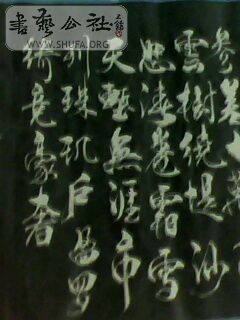 書藝公社
WWW.SHUFA.ORG
參差
雲樹繞堤沙
怒濤卷霜雪
天塹無涯市
列珠璣戶盈羅
綺竟豪奢